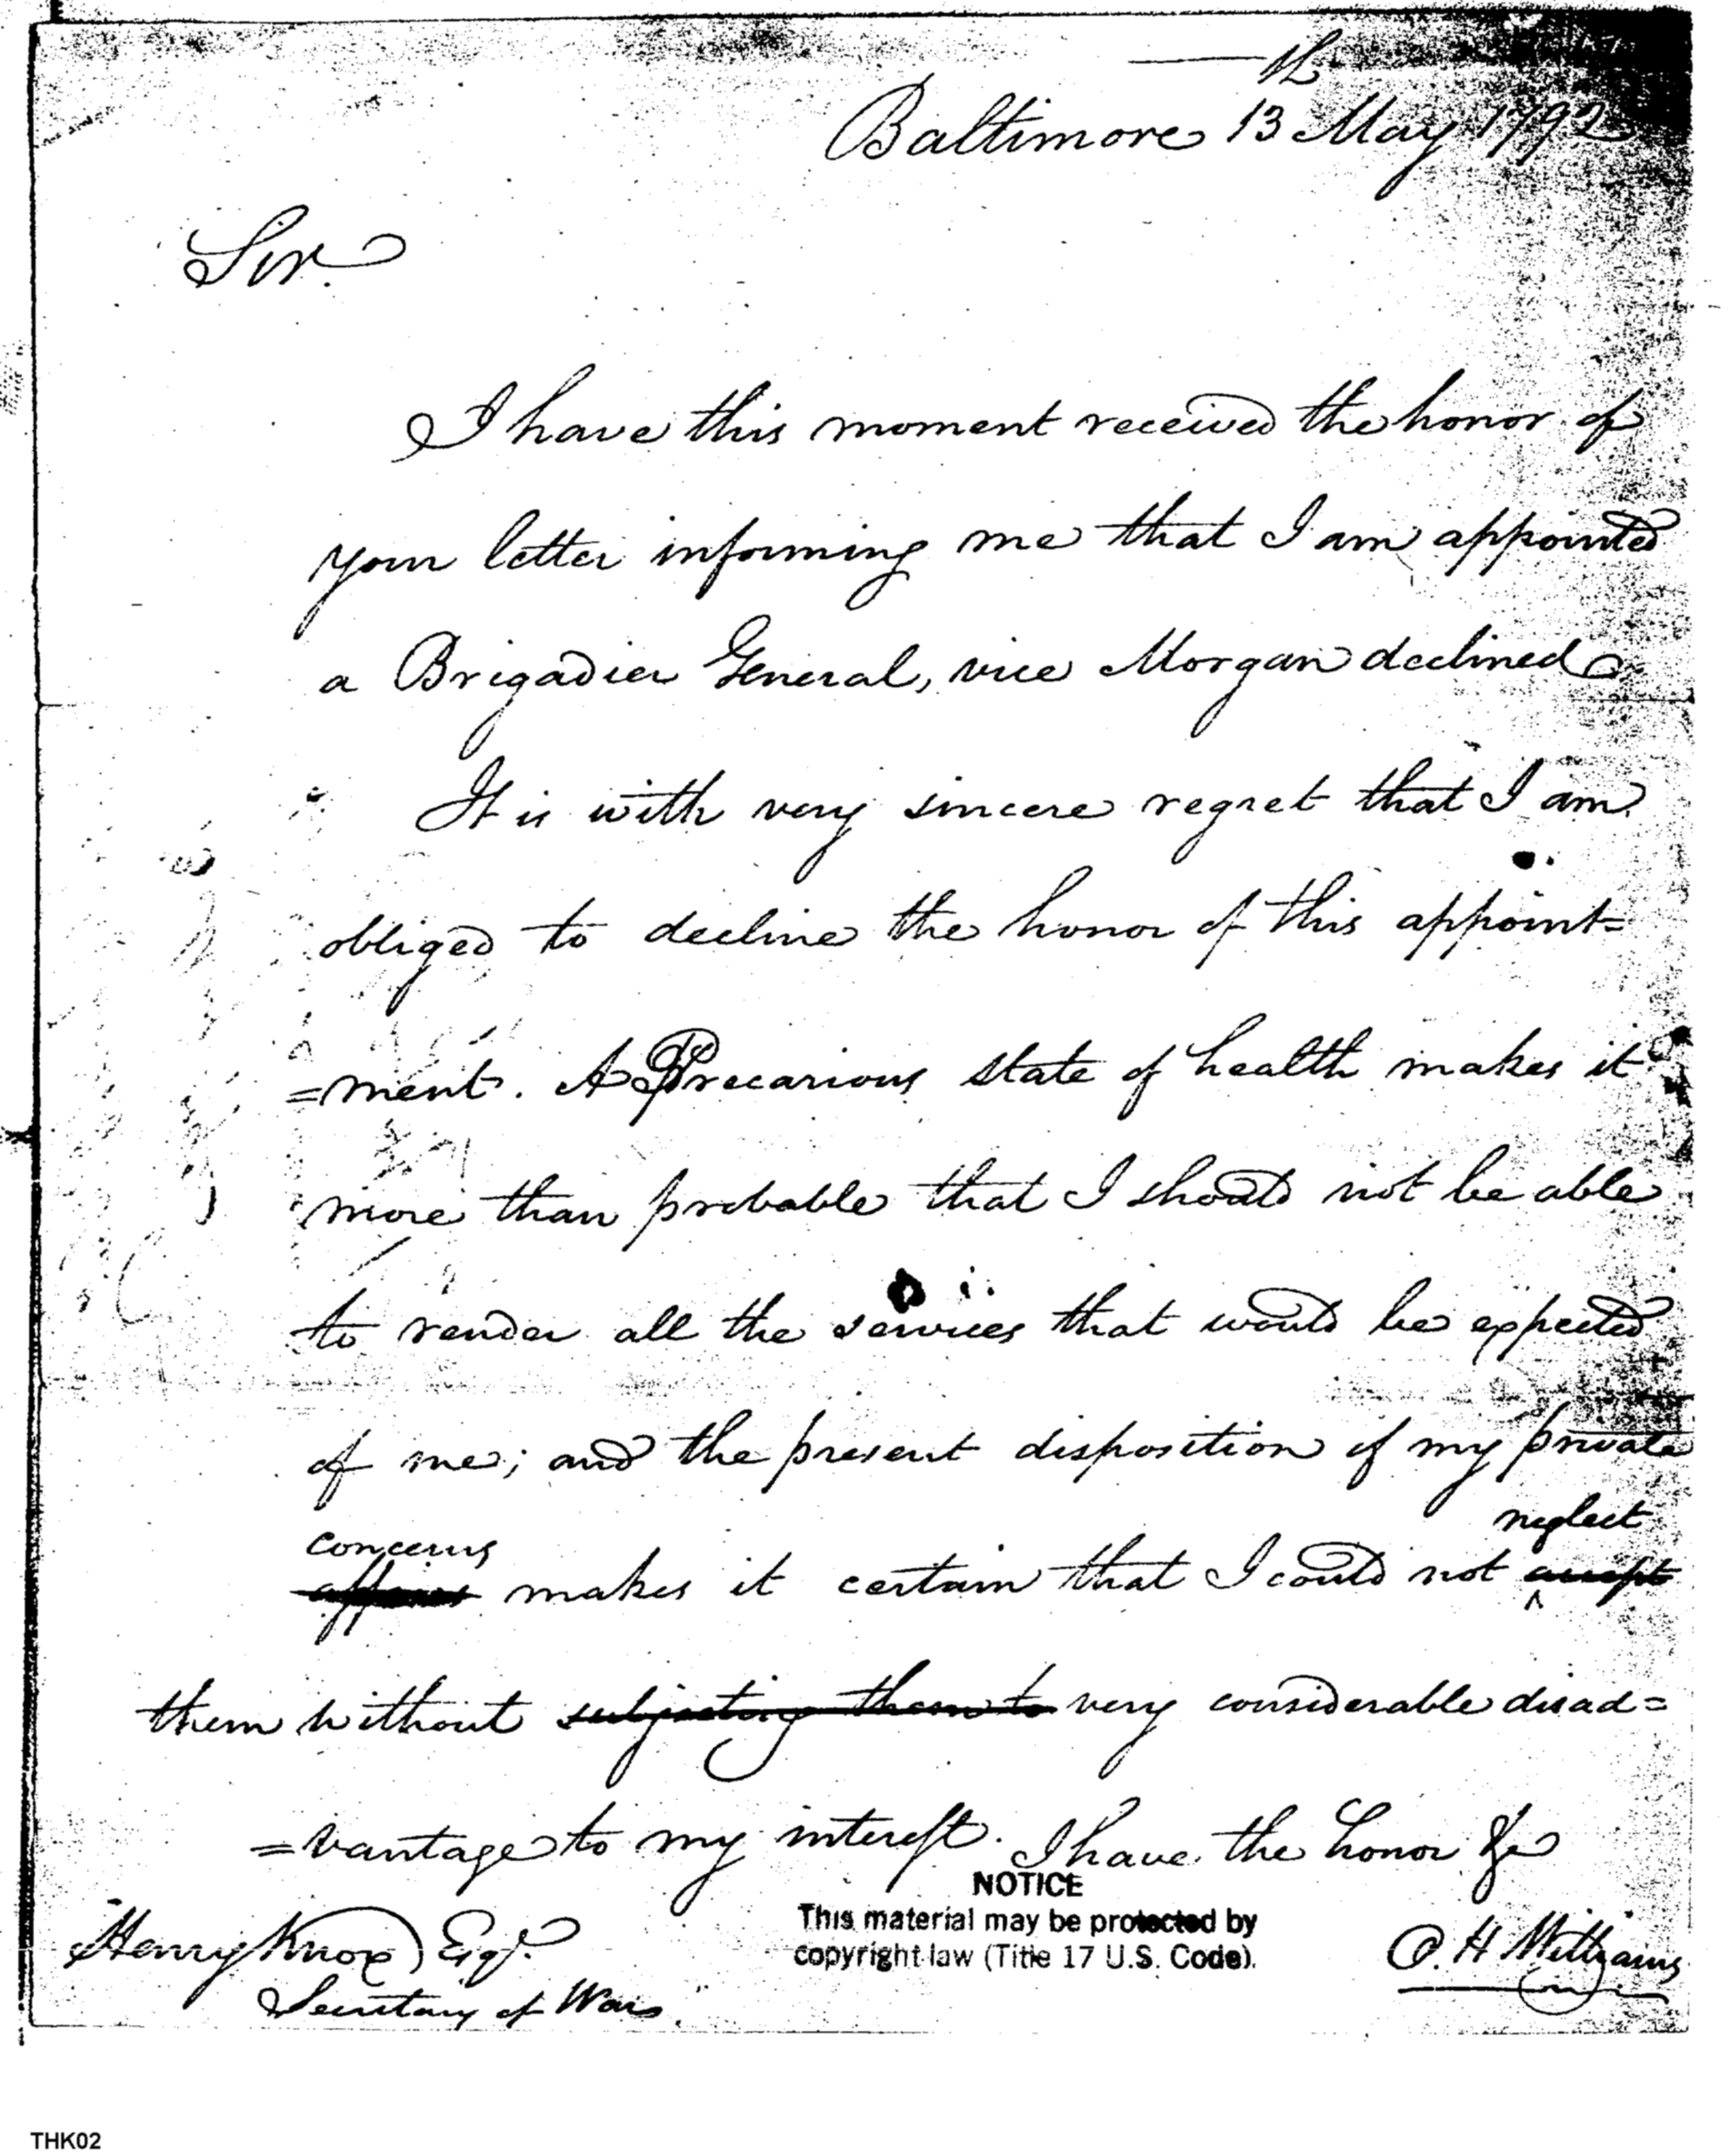 th
Baltimore 13 May 1792
Sir.
I have this moment received the honor of
your letter informing me that I am appointed
a Brigadier General, vice Morgan declined
It is with very sincere regret that I am
obliged to decline the honor of this appoint=
=ment. A Precarious state of health makes it
more than probable that I should not be able
to render all the services that would be expected
of me; and the present disposition of my private
concerns neglect
affairs makes it certain that I could not accept
them without subjecting them to very considerable disad=
=vantage to my interest. I have the honor &c
NOTICE
This material may be protected by
copyright law (Title 17 U.S. Code).
Henry Knox Esqr.
Secretary of War
O. H Williams
THK02